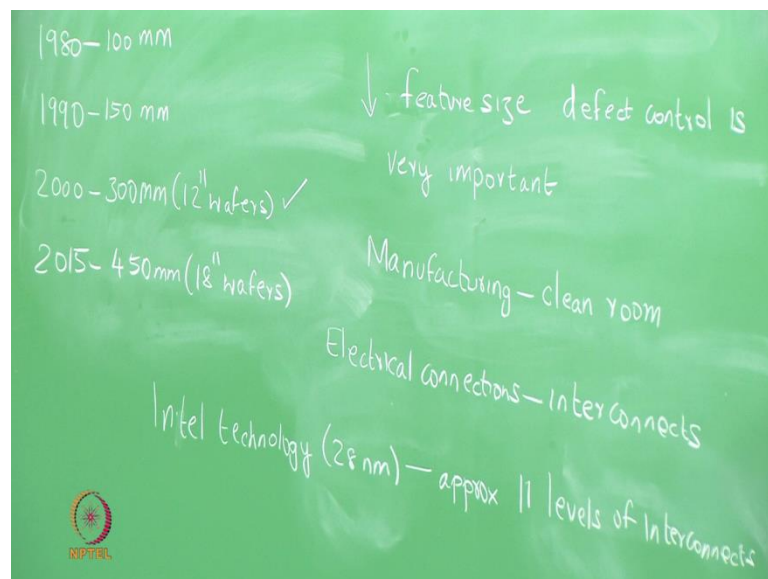 1980 – 100 mm
1990 – 150 mm
2000 – 300mm (12" wafers) ✓
2015 – 450mm (18" wafers)
↓ feature size defect control is
very important
Manufacturing – clean room
Electrical connections – interconnects
Intel technology (28 nm) – approx 11 levels of interconnects
NPTEL